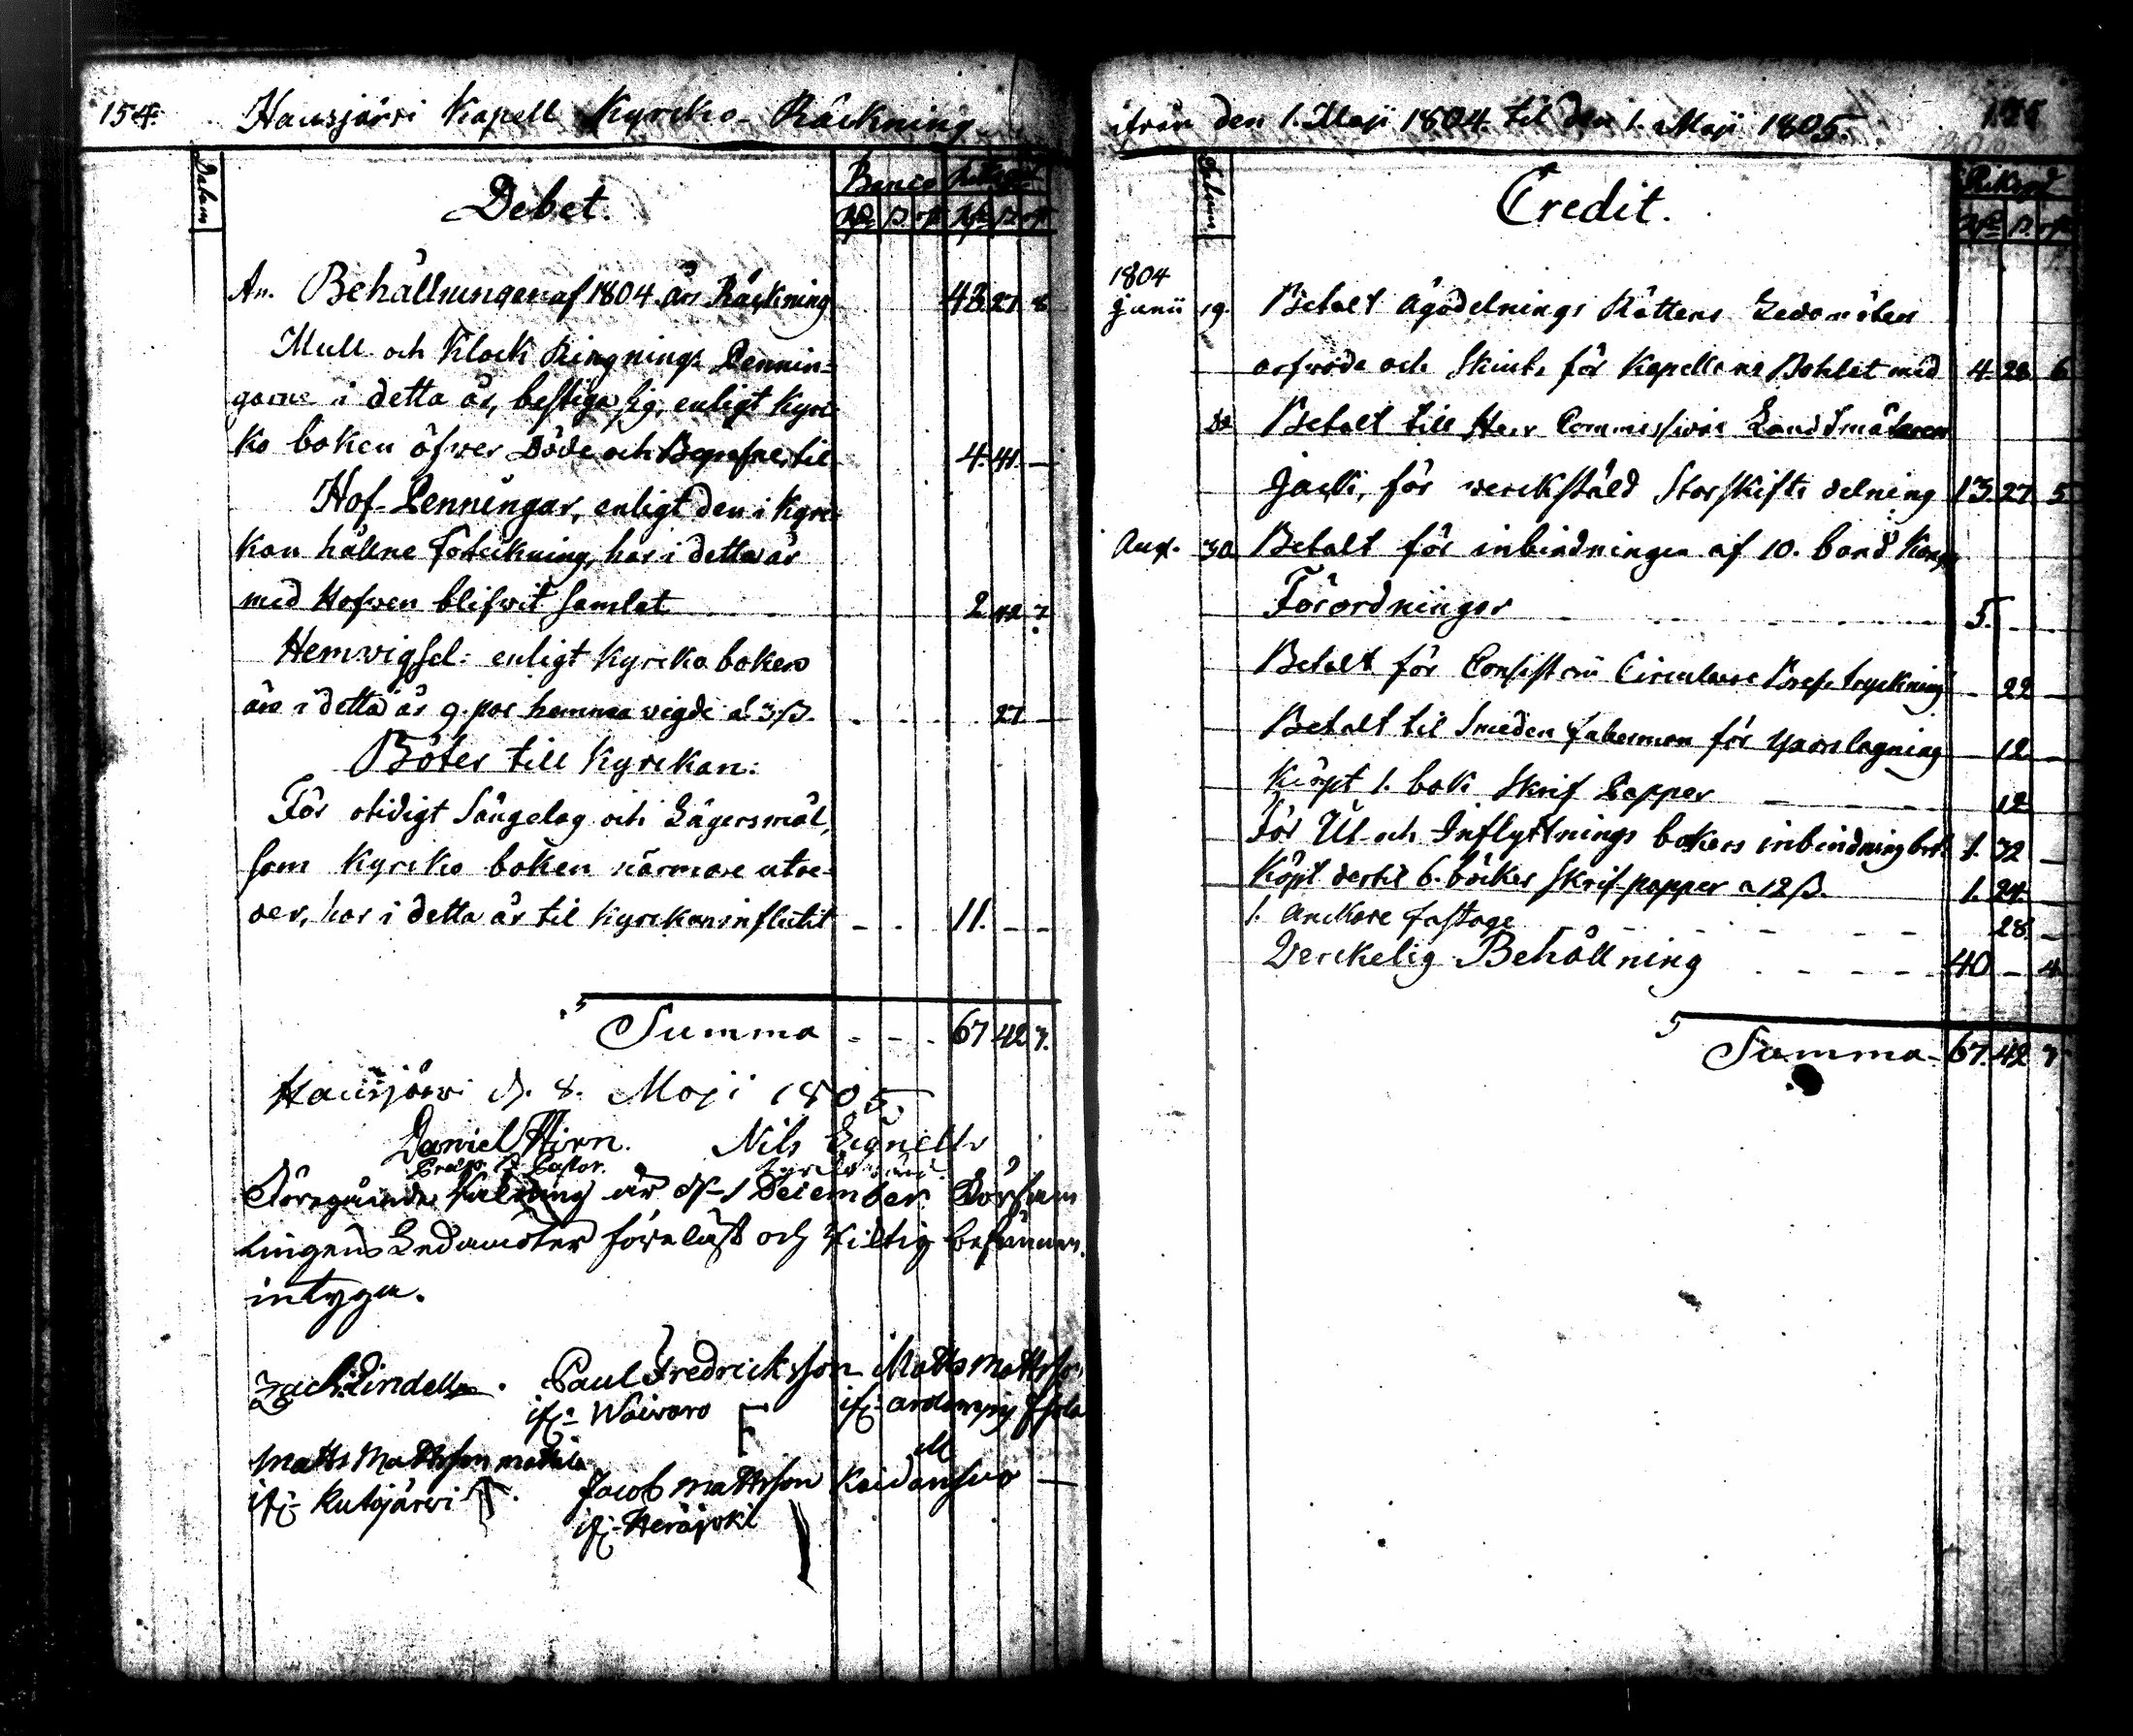 154. Hausjärvi Kapell Kyrcko-Räckning
Datum
Debet.
Banco
Rd. ß. rst. Rd. ß. rst.
An. Behållningen af 1804 års Räckning 43. 27. 8
Mull och Klock Ringnings Pennin-
garne i detta år, bestiga sig, enligt Kyrc-
ko boken öfwer Döde och Begrafne, til 4. 41. -
Hof-Penningar, enligt den i Kyrc-
kan hållne Förteckning, har i detta år
med Hofwen blifwit samlat 2 42. 7.
Hemvigsel: enligt Kyrcko boken
äro i detta år 9. par hemma vigde a 3 ß. 27. -
Böter till Kyrckan:
För otidigt Sängelag och Lägersmål,
som Kyrcko boken närmare utre-
der, har i detta år til Kyrckan influtit 11. - -
Summa 67 42 7.
Hausjärvi d. 8. Maji 1805.
Daniel Hirn. Nils Lignell
Pastor.
Föregående Räkning är d. 1 December Församl
lingens Ledamöter föreläst och riktig befunnen.
intyga.
Zach: Lindell. Paul Fredricksson Matts Mattsson
ifr: Waivaro ifr:
Matts Mattsson Mattila Jacob Mattsson Kaidansuo -
ifr: Kutojärvi ifr: Heräjoki
M
ifrån den 1. Maji 1804. til den 1. Maji 1805. 155
Datum
Credit.
Riksgd
Rd. ß. rst.
1804
Junii 19. Betalt Ägodelnings Rättens Ledamöters
arfvode och Skiuts för Kapellans Bohlet med 4. 28. 6
do Betalt till Herr Commissions Landtmätaren
för verckstäld Storskiftes delning 13. 27. 5
Aug. 30. Betalt för inbindningen af 10. band Kongl
Förordningar 5. - -
Betalt för Consistorii Circulaire Brefs tryckning - 22 -
Betalt til Smeden Faberman för 12 -
Köpt 1. bok Skrif Papper 12
För Ut- och Inflyttnings bokens inbindning bet. 1. 32 -
Köpt dertil 6. böcker Skrif-papper a 12 ß. 1. 24. -
1. Anckare fastage 28. -
Verckelig Behållning 40 - 4
Summa 67. 42 7